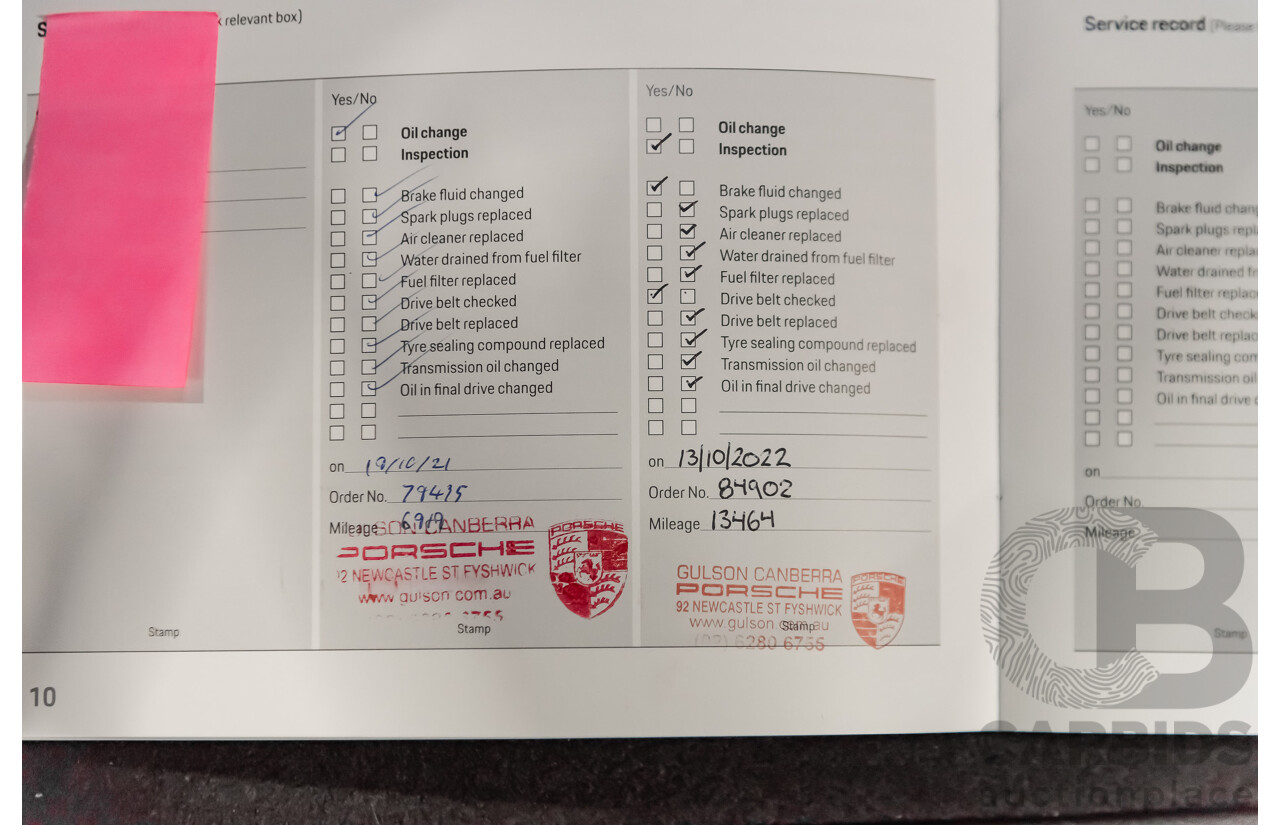 k relevant box)
Yes/No
Oil change
Inspection
Brake fluid changed
Spark plugs replaced
Air cleaner replaced
Water drained from fuel filter
Fuel filter replaced
Drive belt checked
Drive belt replaced
Tyre sealing compound replaced
Transmission oil changed
Oil in final drive changed
on 19/10/21
Order No. 79435
Mileage
CANBERRA
PORSCHE
NEWCASTLE ST FYSHWICK
www.gulson.com.au
PORSCHE
Stamp
Yes/No
Oil change
Inspection
Brake fluid changed
Spark plugs replaced
Air cleaner replaced
Water drained from fuel filter
Fuel filter replaced
Drive belt checked
Drive belt replaced
Tyre sealing compound replaced
Transmission oil changed
Oil in final drive changed
on 13/10/2022
Order No. 84902
Mileage 13464
GULSON CANBERRA
PORSCHE
92 NEWCASTLE ST FYSHWICK
www.gulson.com.au
(02) 6280 6755
PORSCHE
Stamp
Stamp
10
Service record (Please
Yes/No
Oil change
Inspection
Brake fluid chang
Spark plugs repl
Air cleaner repla
Water drained fr
Fuel filter replac
Drive belt check
Drive belt replac
Tyre sealing com
Transmission oil
Oil in final drive c
on
Order No
Mileage
Stamp
CB
CARBIDS
auctionplace